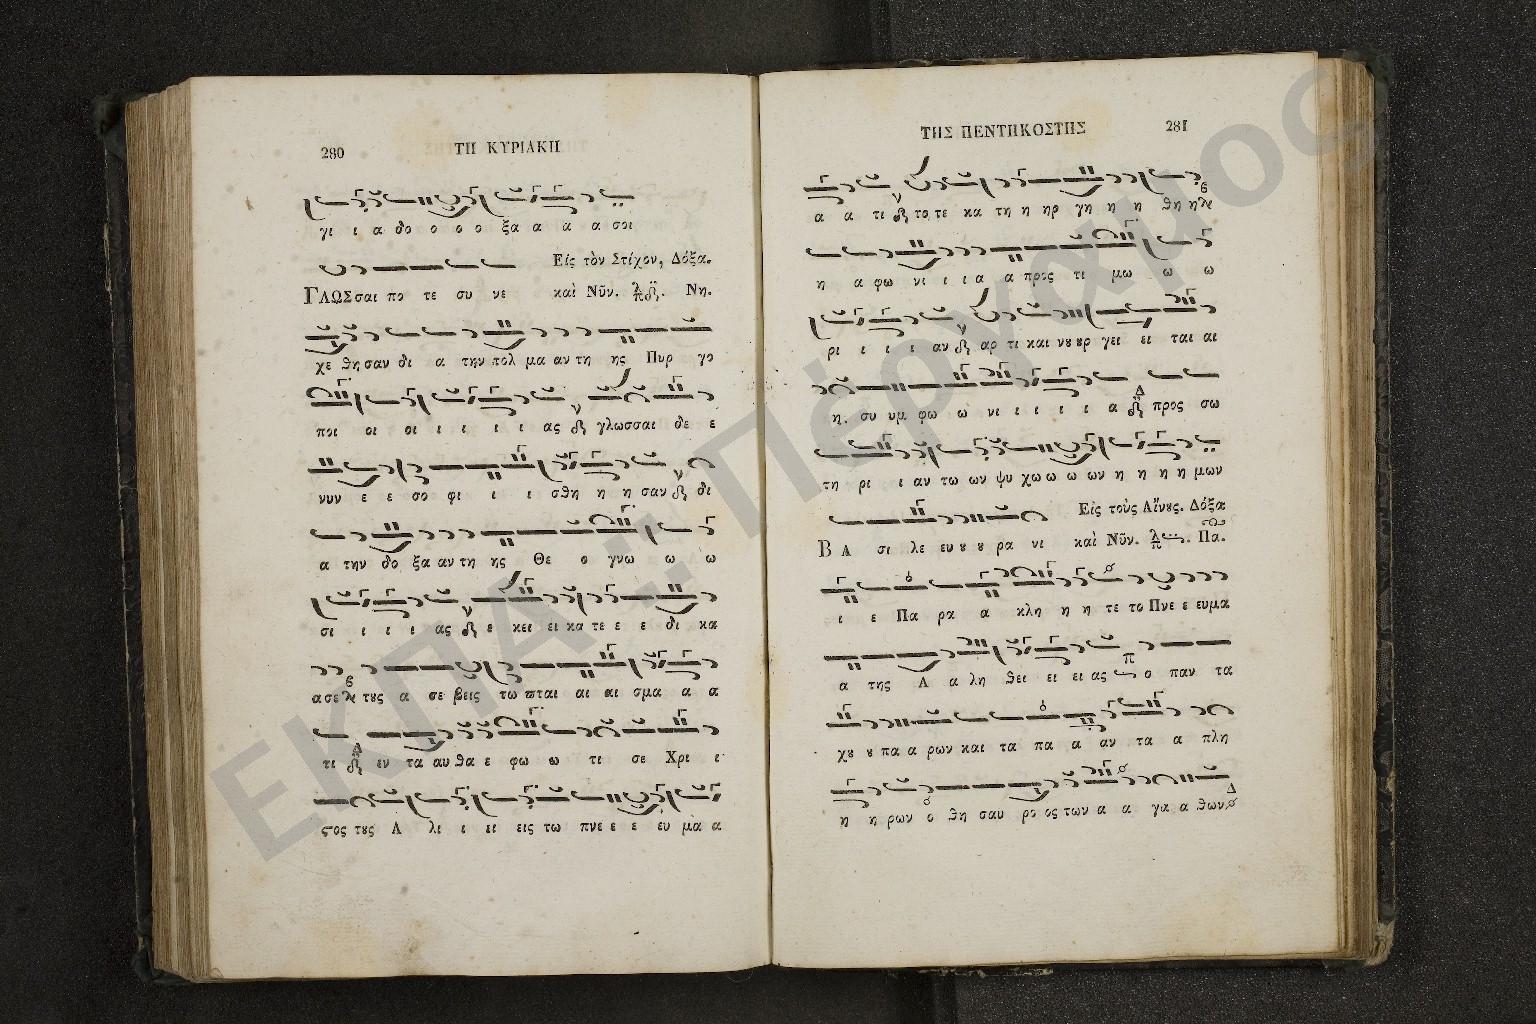 280
ΤΗ ΚΥΡΙΑΚΗ
γι ι α δο ο ο ο ξα α α α σοι
Εἰς τὸν Στίχον, Δόξα.
ΓΛΩΣσαι πο τε συ νε καὶ Νῦν. Νη.
χε θη σαν δι α την τολ μα αν τη ης Πυρ γο
ποι οι οι ι ι ι ι ας γλωσσαι δε ε
νυν ε ε σο φι ι ι σθη η η σαν δι
α την δο ξα αν τη ης Θε ο γνω ω ω
σι ι ι ι ας ε κει ει κα τε ε ε δι κα
α σε τȣς α σε βεις τω πται αι αι σμα α α
τι εν ταυ θα ε φω ω τι σε Χρι ι
στος τȣς Α λι ι ει εις τω πνε ε ε ευ μα α
ΤΗΣ ΠΕΝΤΗΚΟΣΤΗΣ
281
α α τι το τε κα τη η ηρ γη η η θη η
η α φω νι ι ι α α προς τι μω ω ω
ρι ι ι ι αν αρ τι και νȣ ȣρ γει ει ται αι
η συ υμ φω ω νι ι ι ι ι α προς σω
τη ρι ι αν τω ων ψυ χω ω ω ων η η η η μων
Εἰς τοὺς Αἴνȣς. Δόξα
ΒΑ σι λε ευ ȣ ȣ ρα νι καὶ Νῦν. Πα.
ι ε Πα ρα α κλη η η τε το Πνε ε ευμα
α της Α α λη θει ει ει ας ο παν τα
χȣ ȣ πα α ρων και τα πα α αν τα α πλη
η η ρων ο θη σαυ ρο ος των α α γα α θων
ΕΚΠΑ "Πέργαμος"